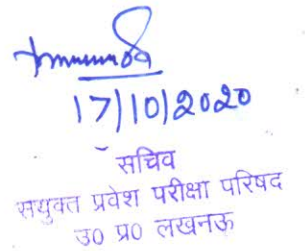 17/10/2020
सचिव
सयुक्त प्रवेश परीक्षा परिषद
उ० प्र० लखनऊ